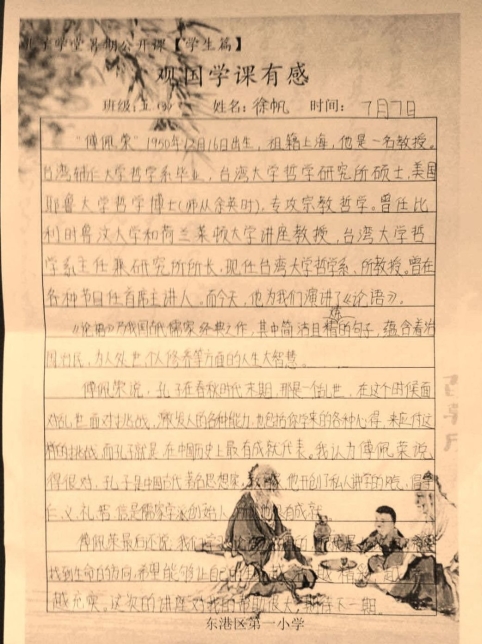 学堂暑期公开课【学生篇】
观国学课有感
班级:五(3) 姓名:徐帆 时间: 7月7日
"傅佩荣"1950年12月16日出生,祖籍上海,他是一名教授。
台湾辅仁大学哲学系毕业,台湾大学哲学研究所硕士,美国
耶鲁大学哲学博士(师从余英时),专攻宗教哲学。曾任比
利时鲁汶大学和荷兰莱顿大学讲座教授,台湾大学哲
学系主任兼研究所所长,现任台湾大学哲学系、所教授。曾在
各种节目任首席主讲人,而今天,他为我们演讲了《论语》。
《论语》乃我国古代儒家经典之作,其中简洁且精炼的句子,蕴含着治
国 代,为人处世,个人修养等方面的人生大智慧。
傅佩荣说,孔子在春秋时代末期,那是一个乱世,在这个时候面
对乱世,面对挑战,激发人的各种能力,也包括你学来的各种心得,来应付这
样的挑战,而孔子就是在中国历史上最有成就代表。我认为傅佩荣说
得很对,孔子是中国古代著名思想家,教育 他开创了私人讲学的 ,倡导
仁、义、礼、智、信是儒家学派创始人, 有成就
傅佩荣最后还说,我们学习
找到生命的方向,希望能够让自己的生
越充实。这次的讲座对我的帮助很大, 期待下一期。
东港区第一小学